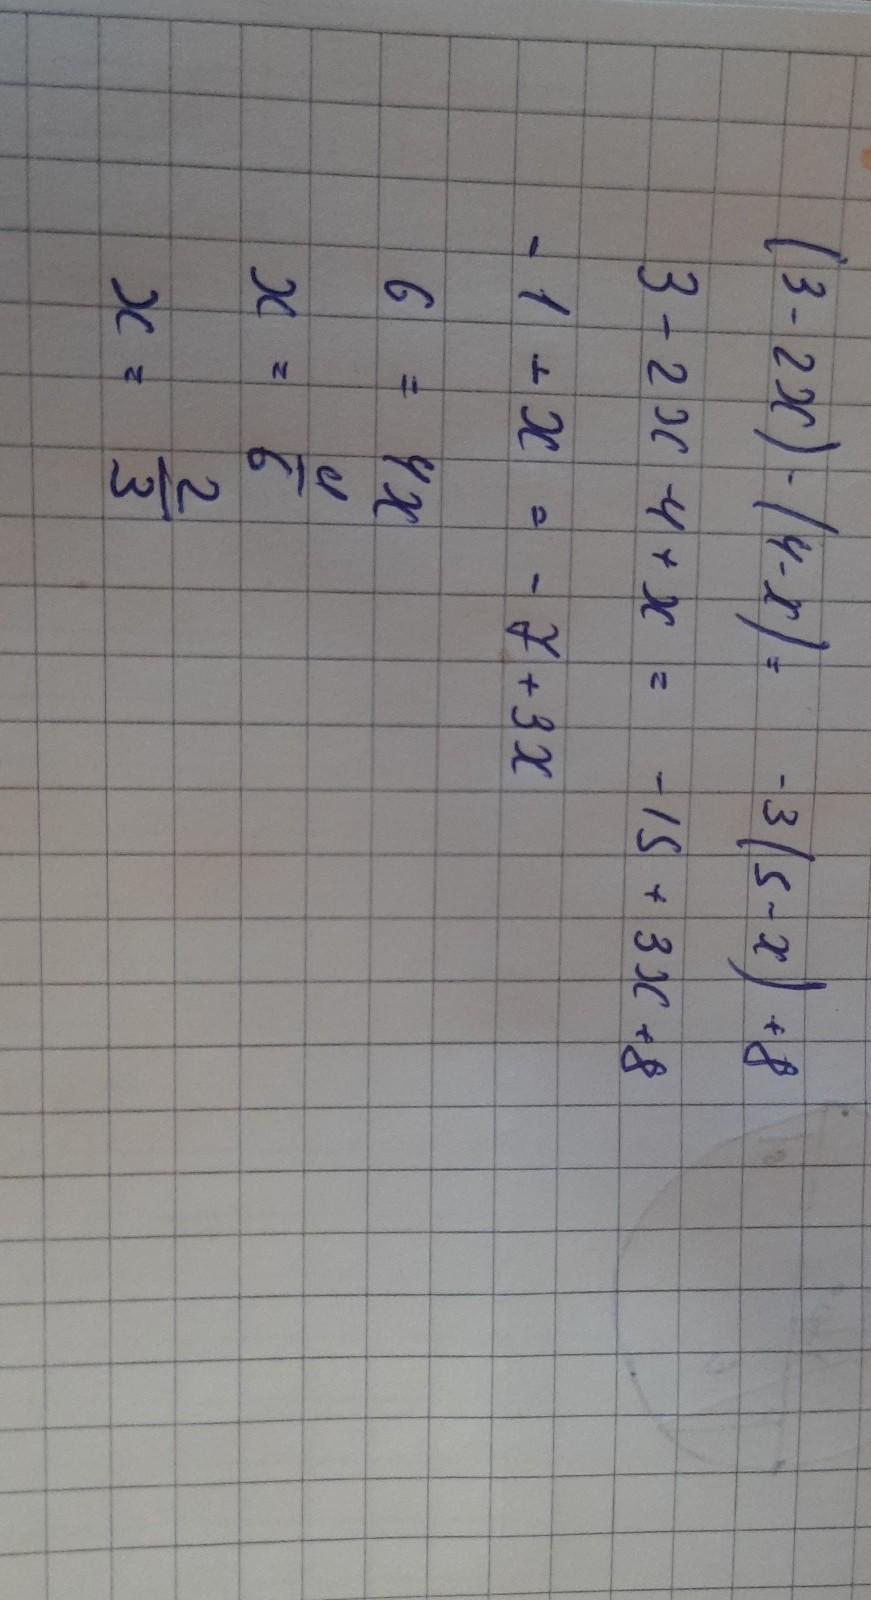 (3-2x)-(4-x)= -3(5-x)+8
3-2x-4+x = -15+3x+8
-1+x = -7+3x
6 = 4x
x = 4/6
x = 2/3